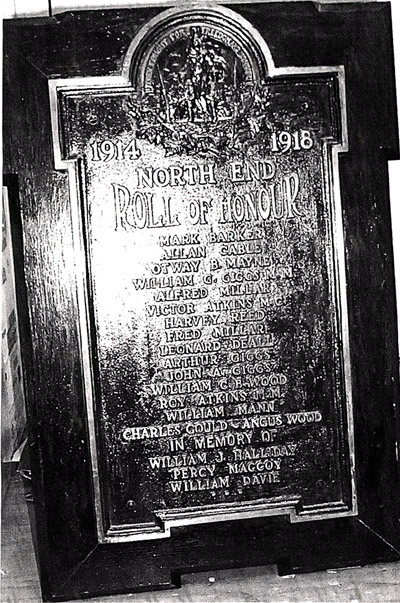 1914 1918
NORTH END
ROLL OF HONOUR
MARK BARKER
ALLAN CABLE
OTWAY B. MAYNE
WILLIAM G. GIGGS M.M.
ALFRED MILLAR
VICTOR ATKINS
HARVEY REED
FRED MILLAR
LEONARD DEALL
ARTHUR GIGGS
JOHN A. GIGGS
WILLIAM C. F. WOOD
ROY ATKINS M.M.
WILLIAM MANN
CHARLES GOULD - ANGUS WOOD
IN MEMORY OF
WILLIAM J. HALLIDAY
PERCY MAGGOY
WILLIAM DAVIE